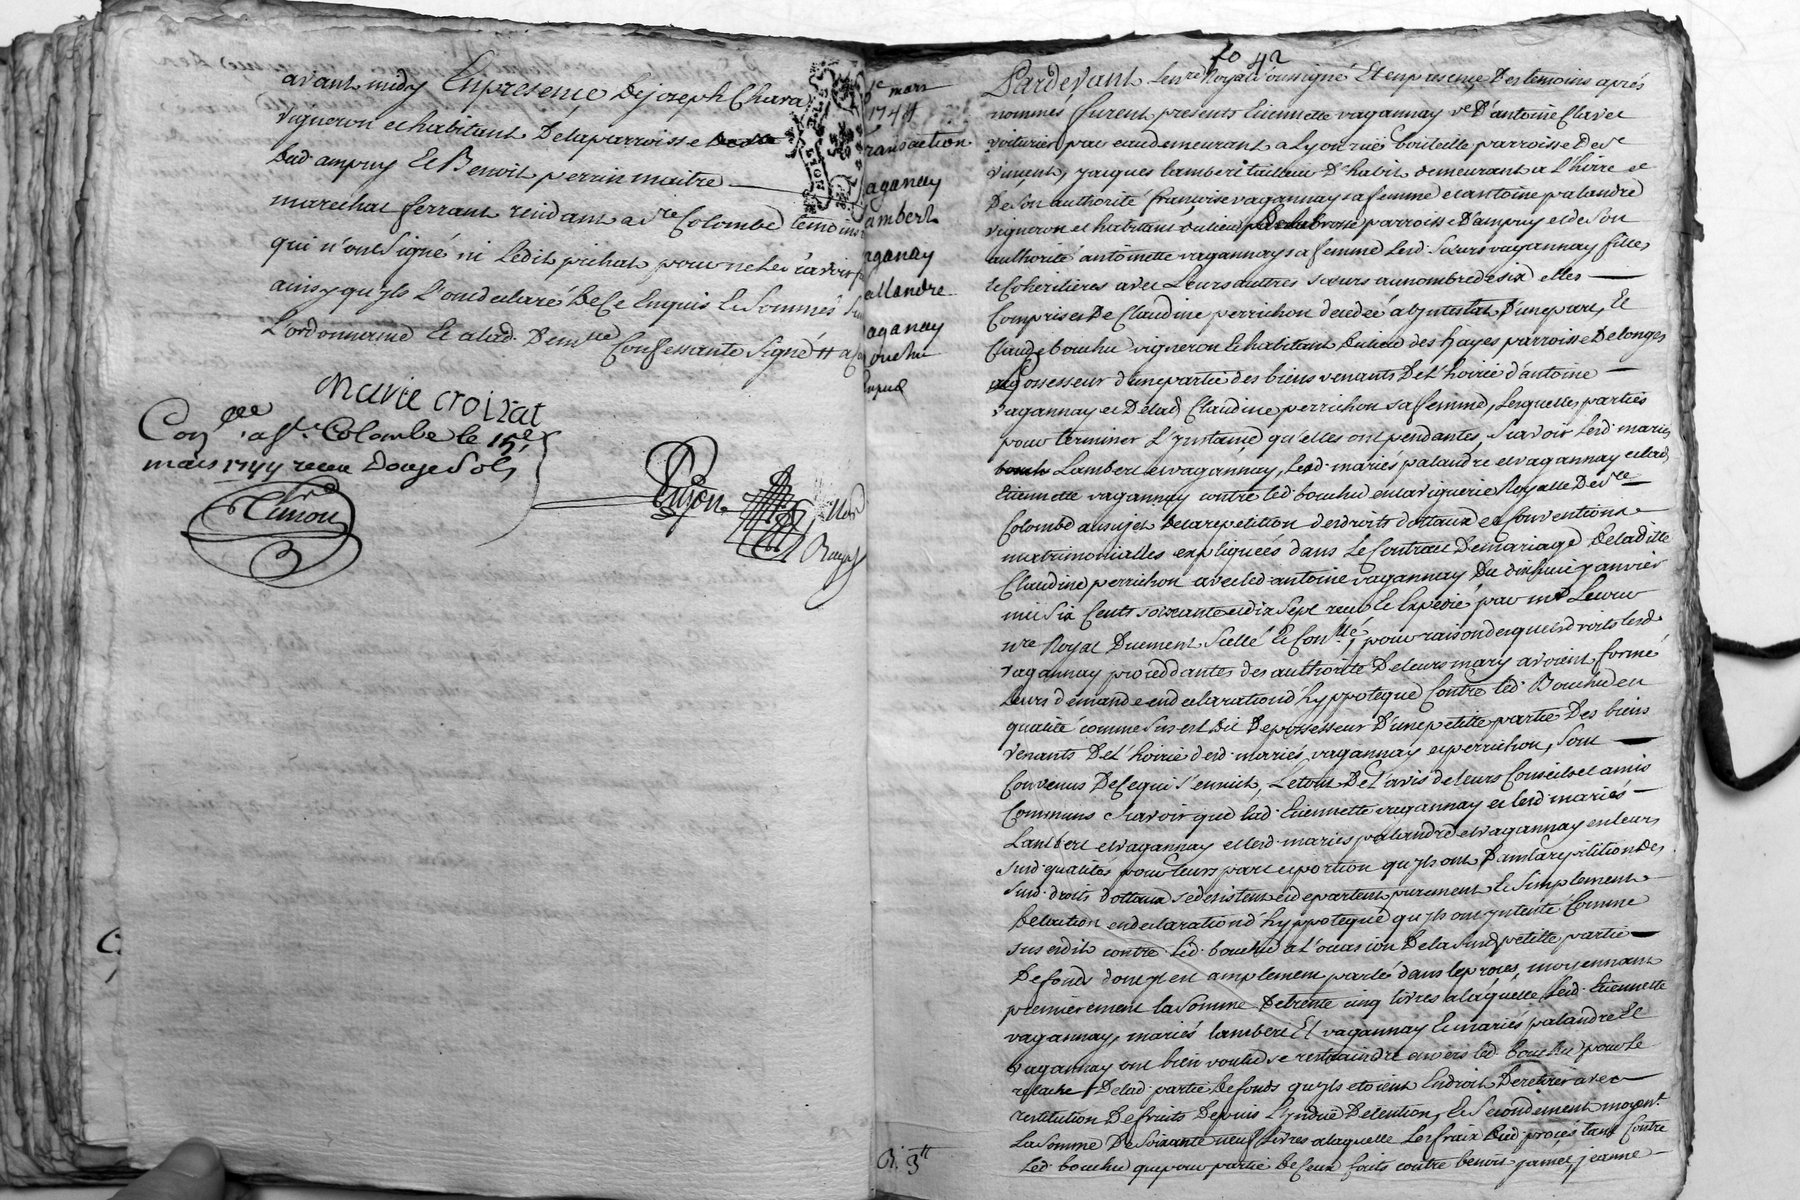 avant midy En presence de joseph Chara
vigneron et habitant de la parroisse
dud ampuy Et Benoit perrin maitre
marechal ferrant residant a Ste Colombe temoins
qui n'ont signé ni ledit prihat pour ne le scavoir
ainsy qu'ils L'ont declaré de ce Enquis Et Sommés
L'ordonnance Et a lad. demlle Confessante Signé
Marie croizat
Conllé a Ste Colombe le 15e
mars 1744 receu Douze Sols
Simon
mars
1744
Transaction
vaganay
Lambert
vaganay
pallandre
vaganay
bouchu
fo 42
Pardevant Le nre Royal soussigné Et en presence Des temoins aprés
nommés furent presents Etiennette vagannay ve D'antoine Clavel
voiturier par eau demeurant a Lyon rüe bouteille parroisse De St
vincent, jacques lambert tailleur D'habit demeurant a L'hoire et
De Son authorité françoise vagannay sa femme et antoine palandre
vigneron et habitant du lieu parroisse D'ampuy et de Son
authorité antoinette vagannay sa femme Lesd. Soeurs vagannay filles
et Coheritières avec Leurs autres Soeurs au nombre de six elles
Comprises De Claudine perrichon decedée abjntestat D'une part, Et
Claude bouchu vigneron Et habitant Du lieu des hayes parroisse De longes
possesseur d'une partie des biens venants De L'hoirie d'antoine
vagannay et De lad. Claudine perrichon sa femme, Lesquelles parties
pour terminer L'jnstance qu'elles ont pendantes, Scavoir Lesd. mariés
Lambert et vagannay, Lesd. mariés palandre et vagannay et lad.
Etiennette vagannay contre led. bouchu en la viguerie Royalle De Ste
Colombe au sujet De la repetition des droits dottaux et Conventions
matrimonialles expliquées dans Le Contrat De mariage De laditte
Claudine perrichon avec led. antoine vagannay Du dixhuit janvier
mil Six Cents soixante et dix Sept receu Et Expedié par me
nre Royal Duement Scellé Et Conllé, pour raison desquels droits lesd.
vagannay proceddantes des authorité De leurs mary avoient formé
Leurs demande en declaration d'hyppoteque Contre led. Bouchu en
qualité comme Sus est dit De possesseur D'une petitte partie Des biens
venants De L'hoirie desd. mariés vagannay et perrichon, Sont
Convenus De Ce qui S'ensuit, Le tout De L'avis de leurs Conseils et amis
Communs Scavoir que lad. Etiennette vagannay et lesd. mariés
Lambert et vagannay et lesd. mariés palandre et vagannay en leurs
susd. qualités pour leurs part et portion qu'ils ont Dans la repetition Des
susd. droits dottaux se desistent et departent purement Et Simplement
De l'action en declaration d'hyppoteque qu'ils ont jntenté Comme
sus est dit contre Led. bouchu a L'occasion De la susd petitte partie
De fonds dont il est amplement parlé dans le procés, moyennant
premierement la Somme De trente cinq livres a laquelle Lesd. Etiennette
vagannay, mariés lambert Et vagannay Et mariés palandre Et
vagannay ont bien voulu se restraindre envers led. bouchu pour Le
relache De lad. partie De fonds qu'ils etoient En droit De retirer avec
restitution De fruits Depuis L'jndue Detention, Et Secondement moyent.
La Somme De Soixante neuf Livres a laquelle Les fraix Dud. procés tant Contre
Led. bouchu que pour partie De Ceux faits contre benoit jamet, jeanne
R. 3 tt